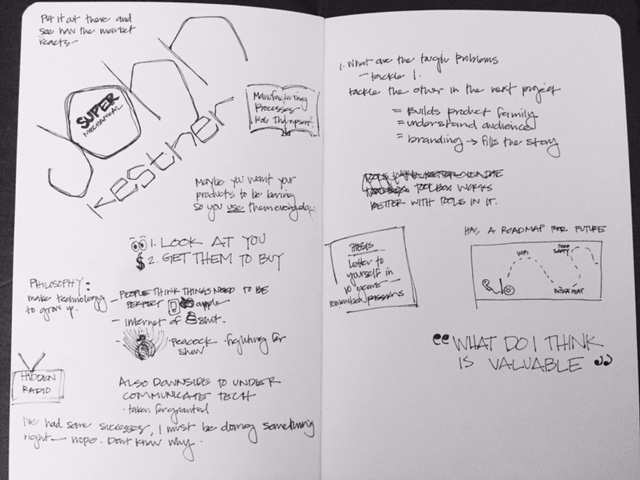 Put it out there and
see how the market
reacts -
JOHN
SUPER
MECHANICAL
KESTNER
Manufacturing
Processes
Rob Thompson
Maybe you want your
products to be boring
so you use them everyday.
1. LOOK AT YOU
$ 2. GET THEM TO BUY
PHILOSOPHY:
make technology
to grow up.
- PEOPLE THINK THINGS NEED TO BE
PERFECT apple
- Internet of shit.
Peacock fighting for
show
HIDDEN
RADIO
ALSO DOWNSIDE TO UNDER
COMMUNICATE TECH
- taken for granted
I've had some successes, I must be doing something
right — nope. Dont know why.
1. What are the tough problems
- tackle 1.
tackle the other in the next project
= Builds product family
= understand audience
= branding → fills the story
TOOLBOX WORKS
BETTER WITH TOOLS IN IT.
THESIS
Letter to
yourself in
10 years
remembered passions
HAS A ROADMAP FOR FUTURE
WIFI
FOOD
SAFETY
“WHAT DO I THINK
IS VALUABLE”